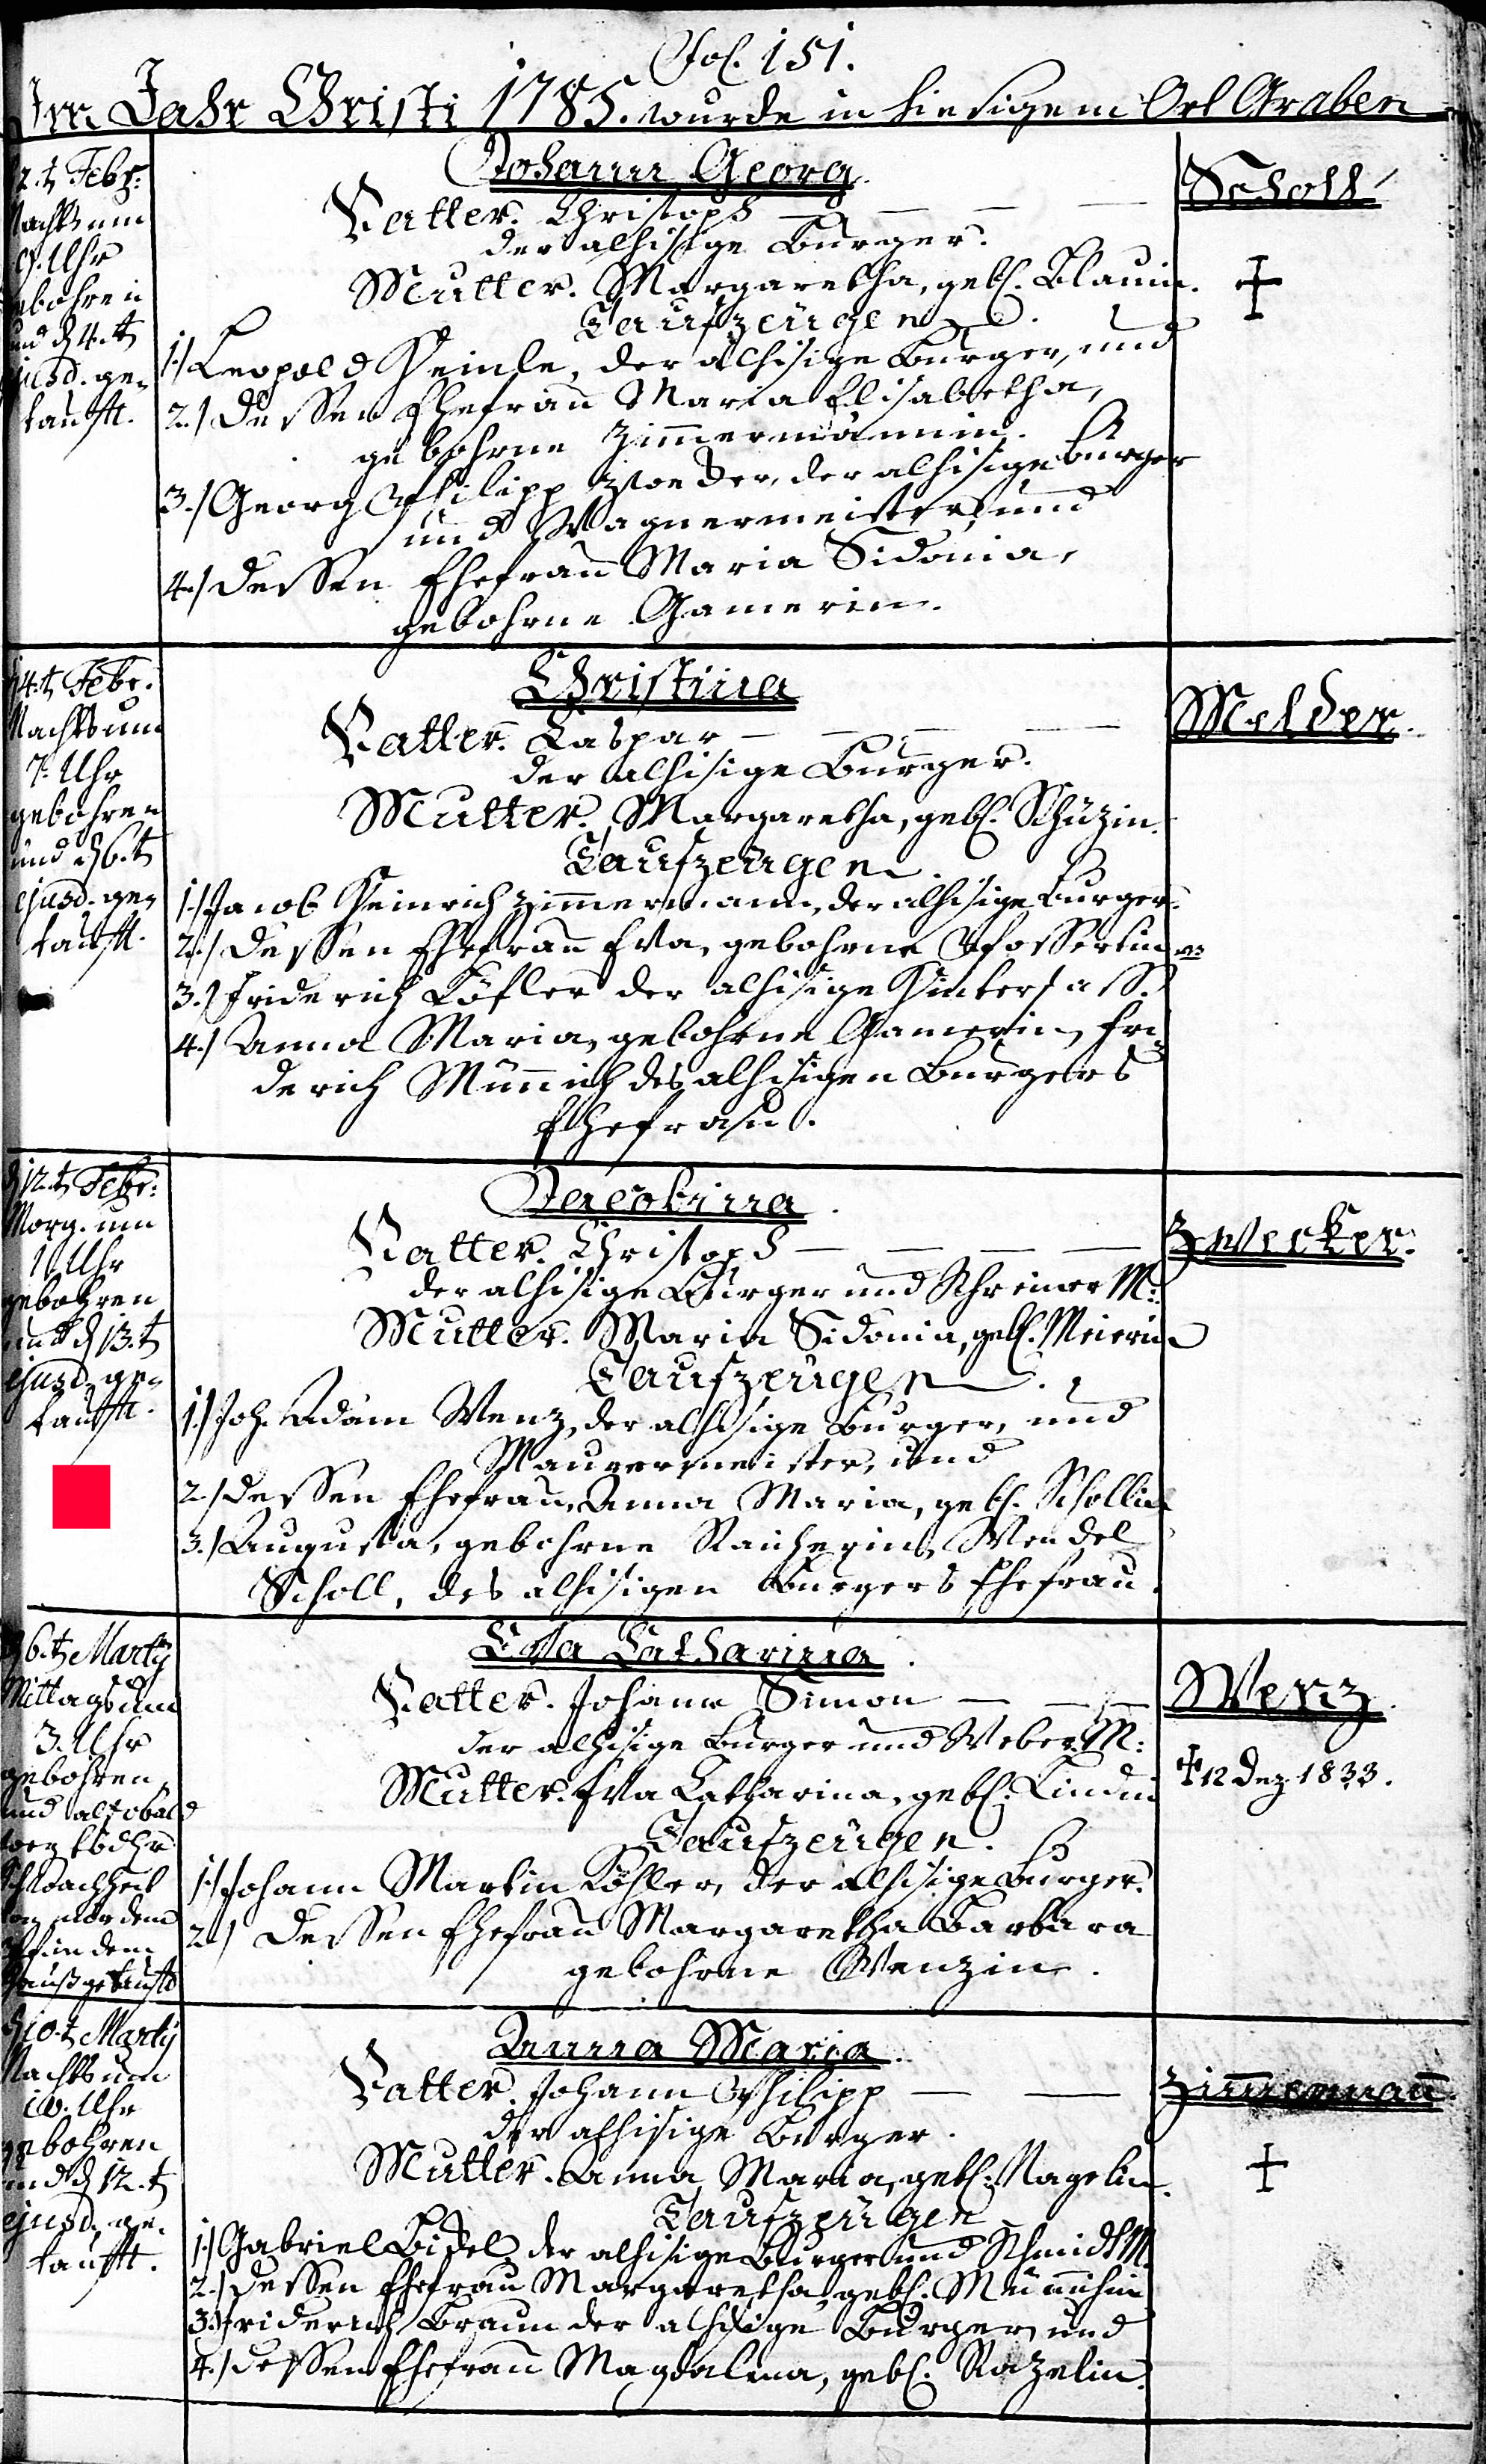 Fol. 151.
Im Jahr Christi 1785. wurde in hiesigem Ort Graben
2.t Febr:
Nachts um
9. Uhr
gebohren
und d 4.t
ejusd. ge-
taufft.
Johann Georg
Vatter. Christoph — — — —
der alhisige Burger.
Mutter. Margaretha, gebh. Blauin.
Taufzeügen.
1.) Leopold Heinle, der alhisige Burger, und
2.) deßen Ehefrau Maria Elisabetha,
gebohrne Zimmermännin.
3.) Georg Philipp der alhisige Burger
und Wagnermeister, und
4.) deßen Ehefrau Maria Sidonia,
gebohrne Gamerin.
Scholl
+
d 4.t Febr.
Nachts um
7. Uhr
gebohren
und d 6.t
ejusd. ge-
taufft.
Christina
Vatter. Caspar — — — —
der alhisige Burger.
Mutter. Margaretha, gebh. Schüzin.
Taufzeügen.
1.) Jacob Heinrich Zimmermann, der alhisige Burger.
2.) deßen Ehefrau Eva, gebohrne
3.) Friderich Löfler der alhisige Hintersaß.
4.) Anna Maria, gebohrne Gamerin, Fri-
derich Münnich des alhisigen Burgers
Ehefrau.
Melder.
d 12.t Febr:
Morg. um
1 Uhr
gebohren
und d 13.t
ejusd. ge-
taufft.
Jacobina.
Vatter. Christoph — — — —
der alhisige Burger und Schreiner M:
Mutter. Maria Sidonia, gebh. Meierin
Taufzeügen.
1.) Joh. Adam Wenz, der alhisige Burger, und
Maurermeister, und
2.) deßen Ehefrau, Anna Maria, gebh. Schollin
3.) Augusta, gebohrne Raicherin, Wendel
Scholl, des alhisigen Burgers Ehefrau.
Zwecker.
d 6.t Martij
Mittags um
3. Uhr
gebohren
und alsobald
weg
Schwachheit
dem
in dem
Hauß getaufft
Eva Catharina.
Vatter. Johann Simon — — —
der alhisige Burger und Weber M:
Mutter. Eva Catharina, gebh. Lindin
Taufzeügen.
1.) Johann Martin Köhler, der alhisige Burger.
2.) deßen Ehefrau Margaretha Barbara
gebohrne Wenzin.
Wenz.
+ 12 Dez 1833.
d 10.t Martij
Nachts um
10. Uhr
gebohren
und d 12.t
ejusd. ge-
taufft.
Anna Maria.
Vatter. Johann Philipp — —
der alhisige Burger.
Mutter. Anna Maria, gebh. Nagelin.
Taufzeügen
1.) Gabriel der alhisige Burger und Schmidt M.
2.) deßen Ehefrau Margaretha, gebh. Münnichin
3.) Friderich Braun der alhisige Burger, und
4.) deßen Ehefrau Magdalena, gebh. Razelin.
Zim̄erman̄.
+